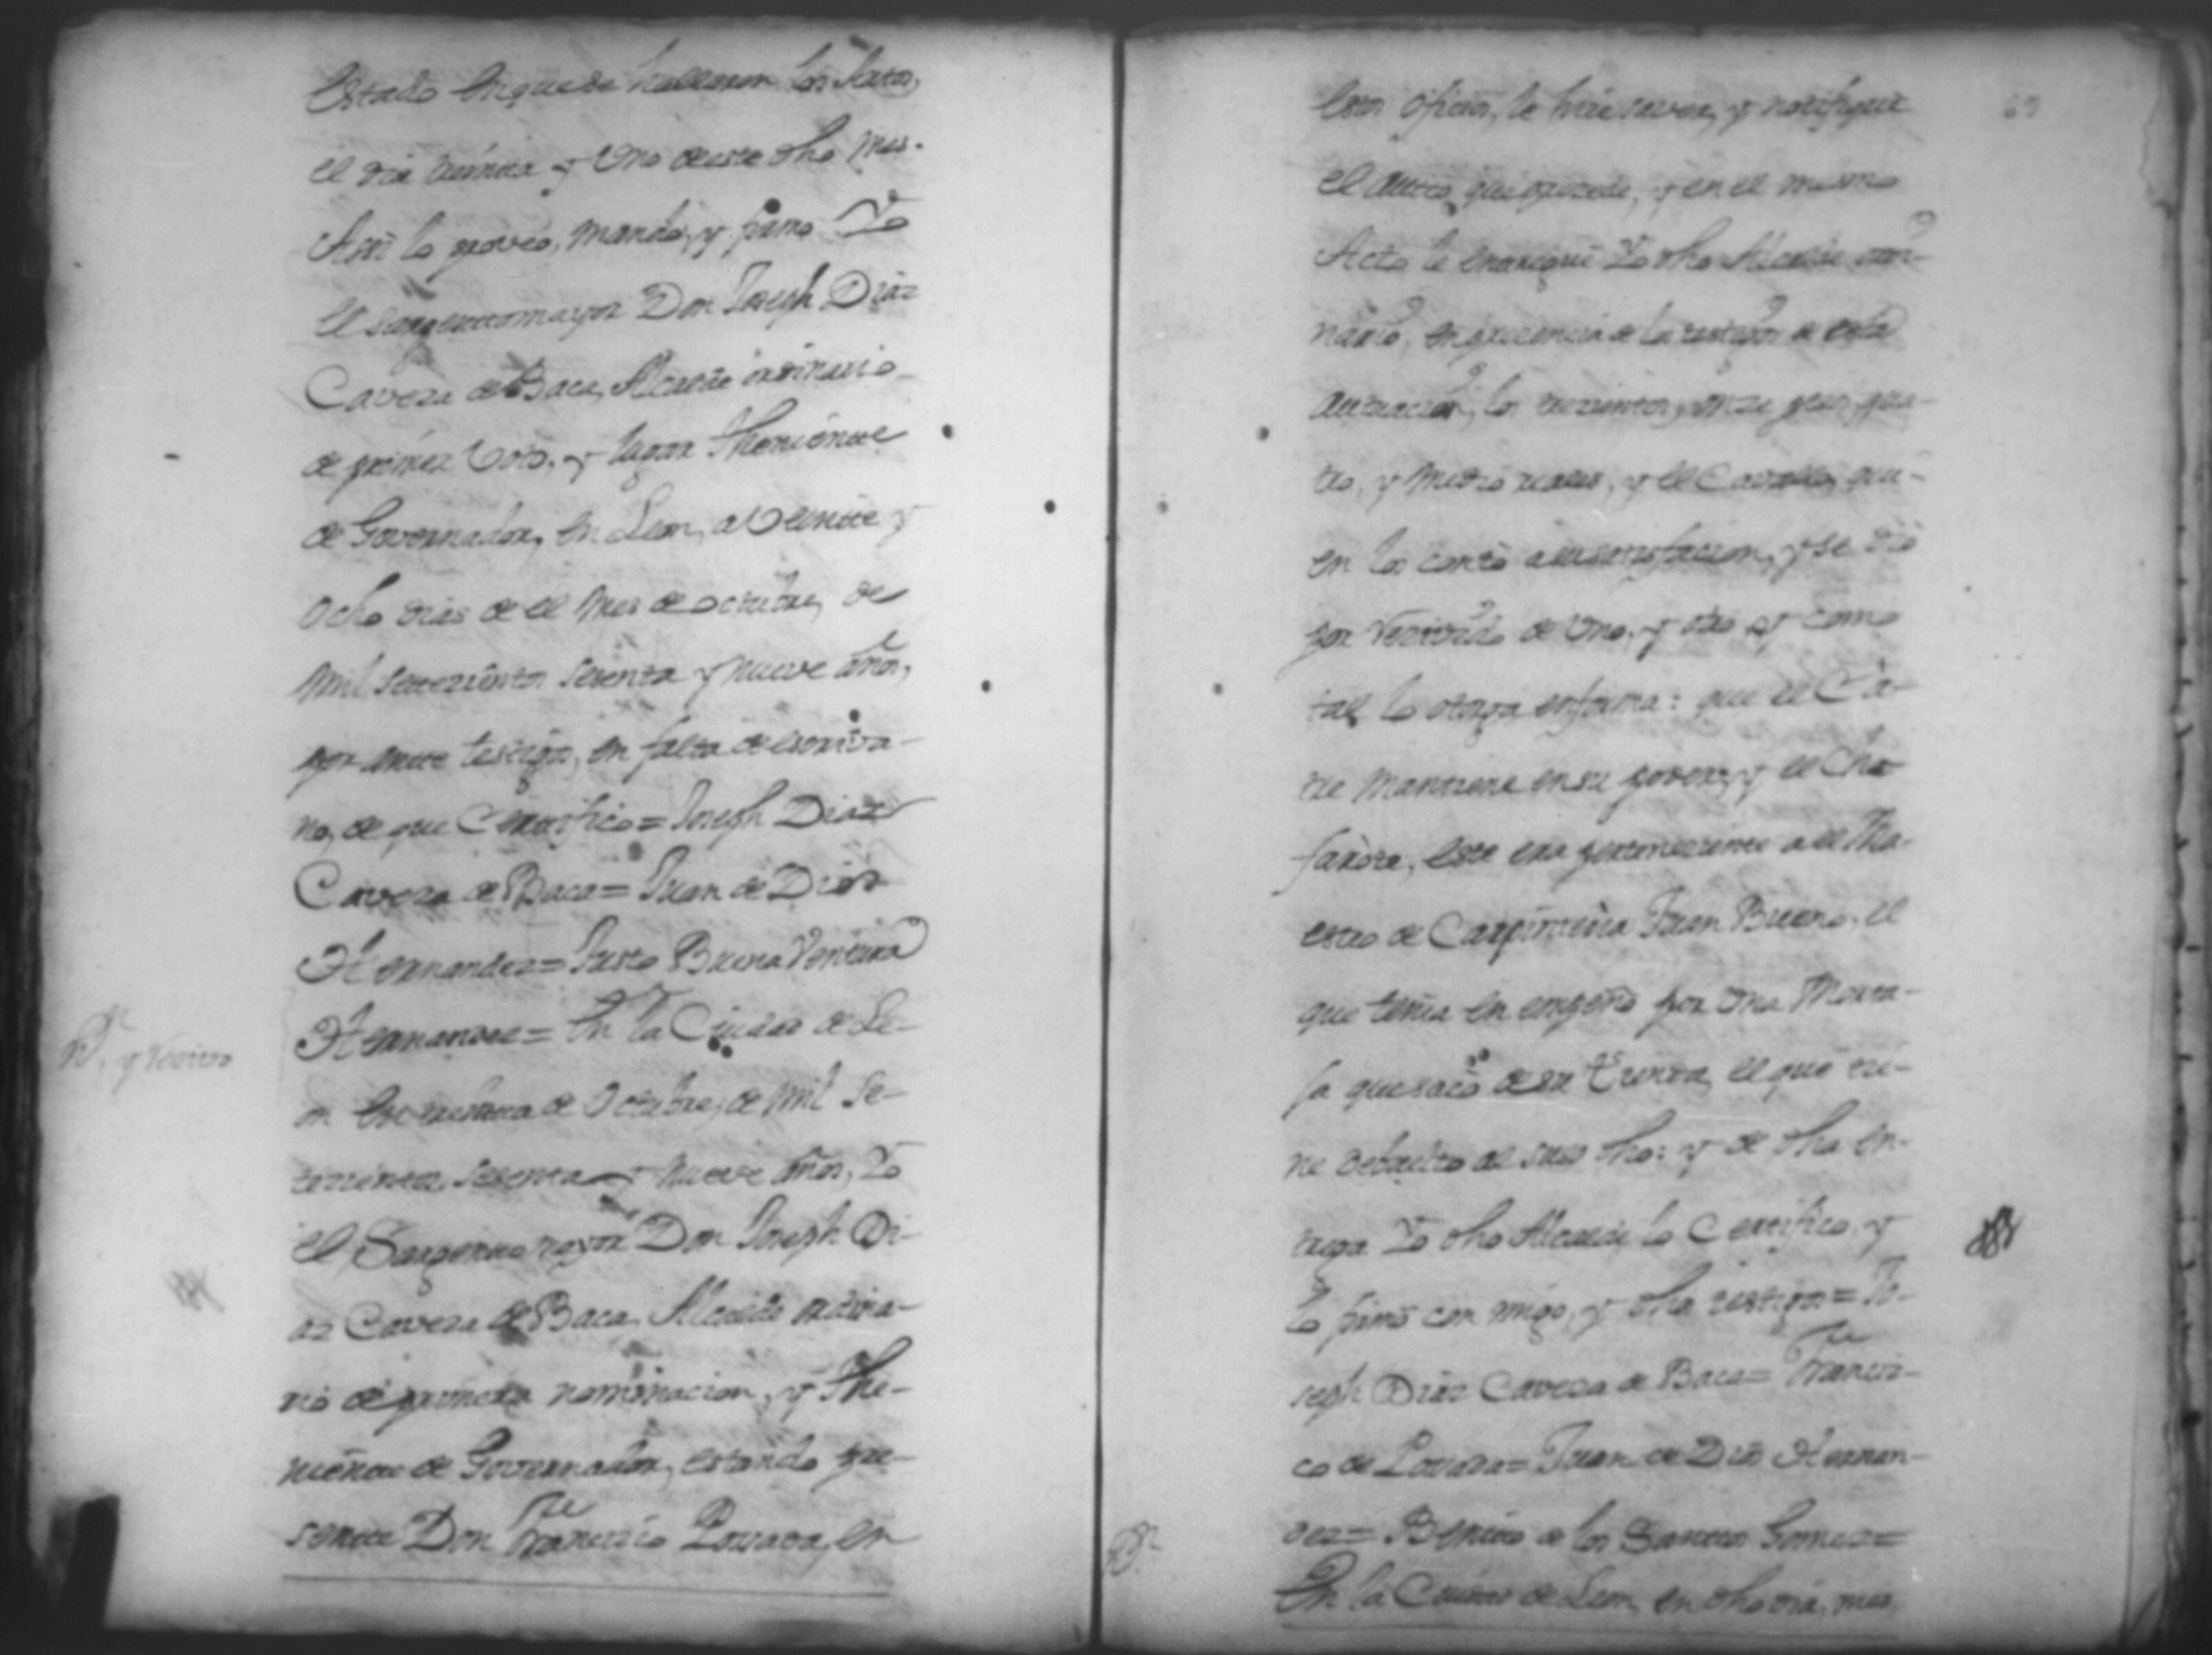 Estado en que se hallaren los Autos,
el dia treinta y Uno de este dho mes.
Assi lo proveo, mando, y firmo Yo
el Sargento mayor Don Joseph Diaz
Caveza de Baca, Alcalde ordinario
de primer Voto, y lugar Theniente
de Governador, en Leon, a Veinte y
Ocho dias de el Mes de octubre, de
Mil setecientos sesenta y nueve años,
por ante testigos, en falta de escriva-
no, de que Certifico = Joseph Diaz
Caveza de Baca = Juan de Dios
Hernandez = Justo Buena Ventura
Nn. y recivo
Hernandez = En la Ciudad de Le-
on en treinta de Octubre, de Mil Se-
tecientos, sesenta y nueve años, Yo
el Sargento mayor Don Joseph Di-
az Caveza de Baca, Alcalde ordina-
rio de primera nominacion, y The-
niente de Governador, estando pre-
sente Don Francisco Posada, en
63
estos oficios, le hice saver, y notifiqué
el Auto, que precede, y en el mismo
Acto le entregué Yo dho Alcalde ordi-
nario, en presencia de los testigos de esta
actuacion, los trecientos, onze pesos, qua-
tro, y medio reales, y el Cavallo, que
en los contó a su satisfacion, y se dió
por recivido de Uno, y otro, y como
tal lo otorga en forma: que el Ca-
tre mantiene en su poder, y el Cha-
farote, este era perteneciente a el Ma-
estro de Carpinteria Juan Bueno, el
que tenia en empeño por Una
que sacó de su tienda, el que tie-
ne debuelto al suso dho: y de dha en-
trega Yo dho Alcalde lo Certifico, y
lo firmó con migo, y dhos testigos = Jo-
seph Diaz Caveza de Baca = Francis-
co de Posada = Juan de Dios Hernan-
dez = Benito de los Santos Gomez =
Nn.
En la Ciudad de Leon, en dho dia, mes